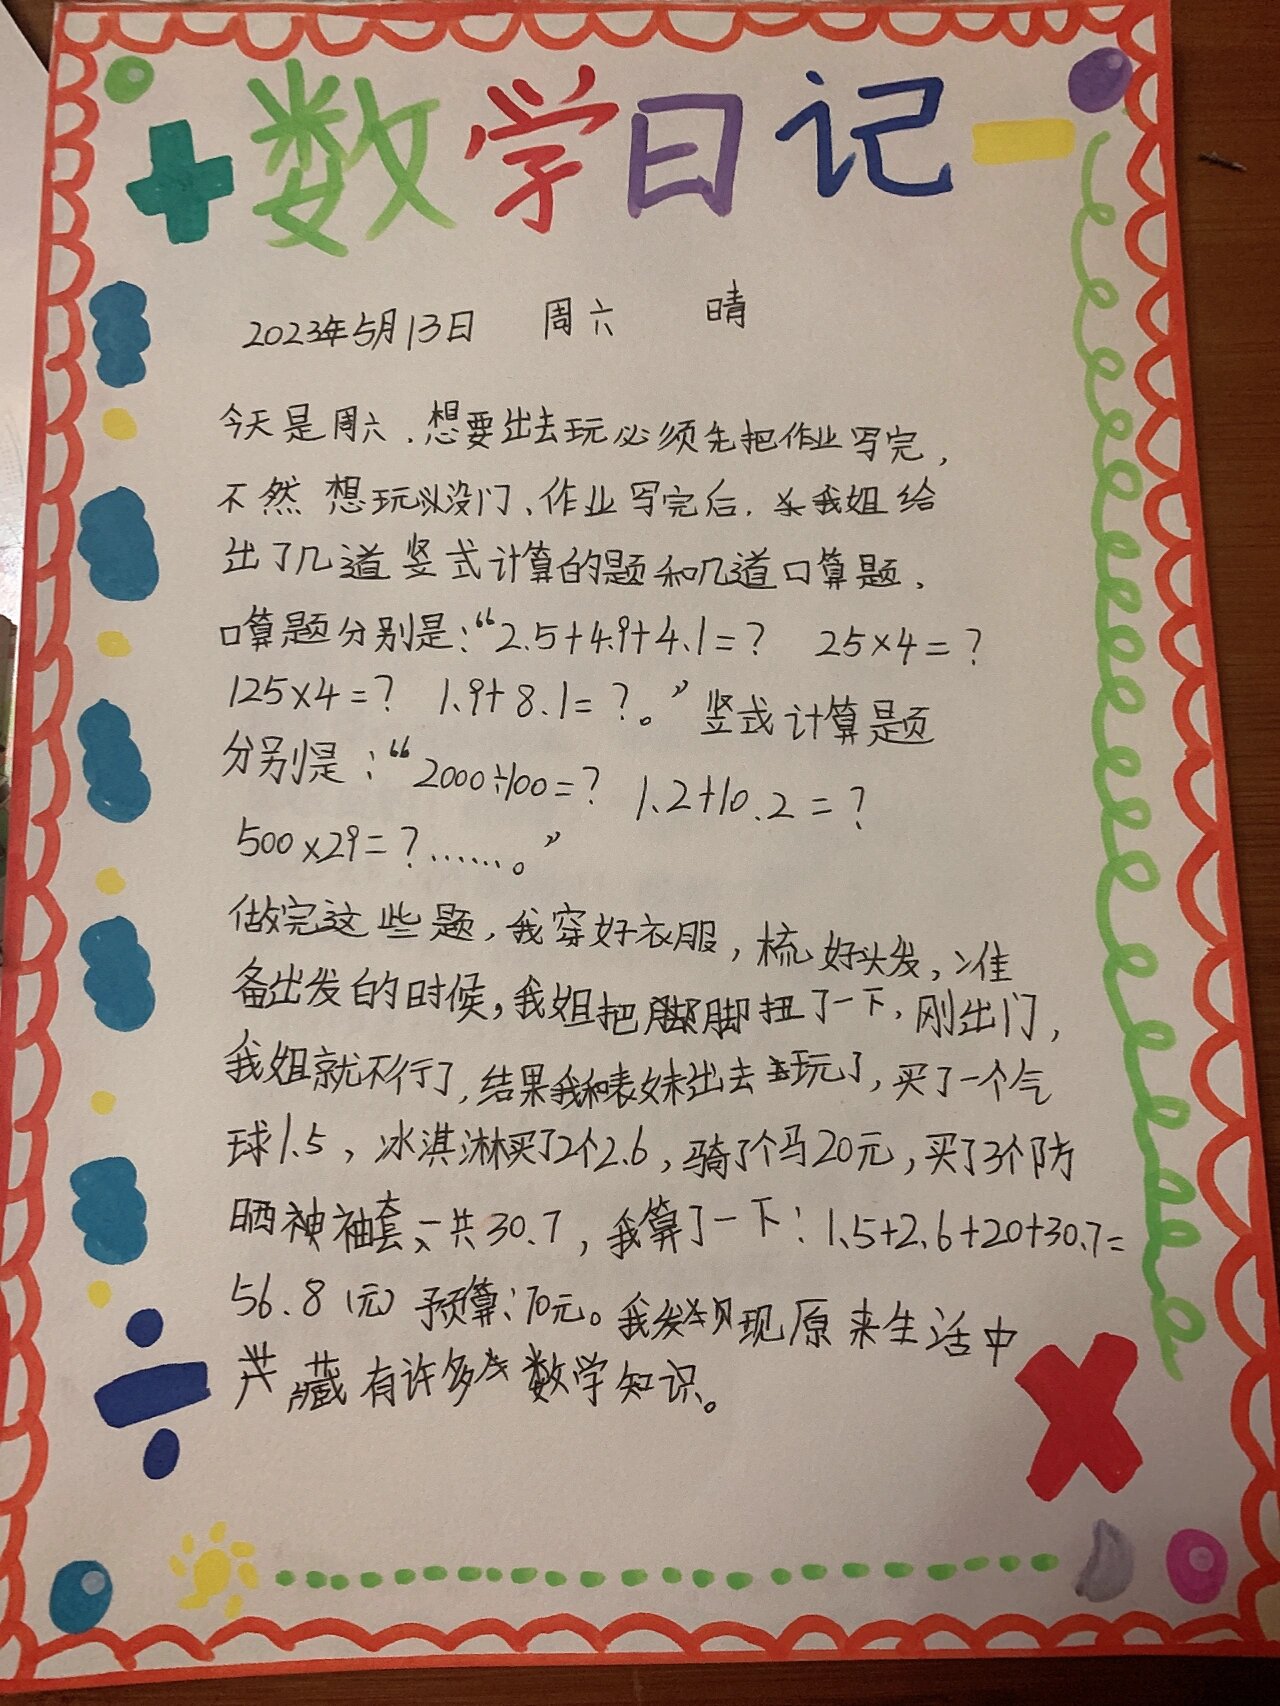 数学日记
2023年5月13日 周六 晴
今天是周六.想要出去玩必须先把作业写完,
不然想玩没门、作业写完后.我姐给
出了几道竖式计算的题和几道口算题.
口算题分别是:“2.5+4.9+4.1=? 25×4=?
125×4=? 1.9+8.1=?。”竖式计算题
分别是:“2000÷100=? 1.2+10.2=?
500×29=?……。”
做完这些题,我穿好衣服,梳好头发,准
备出发的时候,我姐把脚扭了一下.刚出门,
我姐就不行了,结果我和表妹出去玩了,买了一个气
球1.5,冰淇淋买了2个2.6,骑了个马20元,买了3个防
晒袖套、一共30.7,我算了一下:1.5+2.6+20+30.7=
56.8(元)预算:70元。我发现原来生活中
藏有许多数学知识。